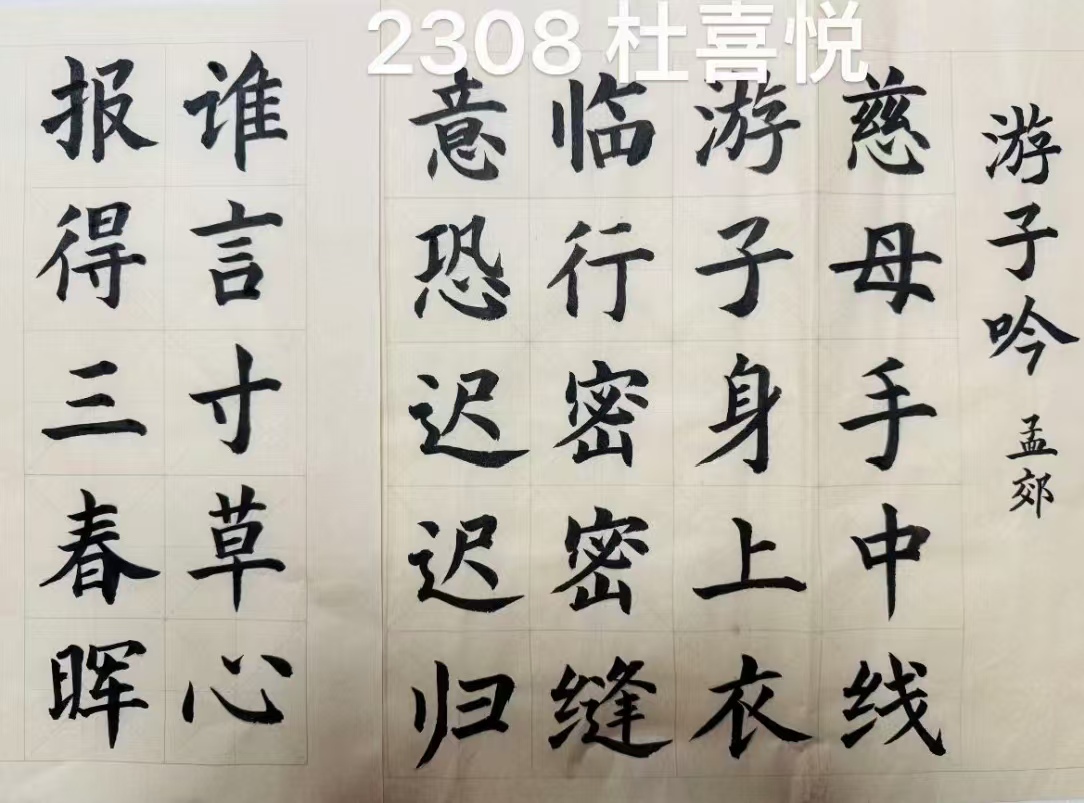 2308 杜喜悦
游子吟 孟郊
慈母手中线
游子身上衣
临行密密缝
意恐迟迟归
谁言寸草心
报得三春晖